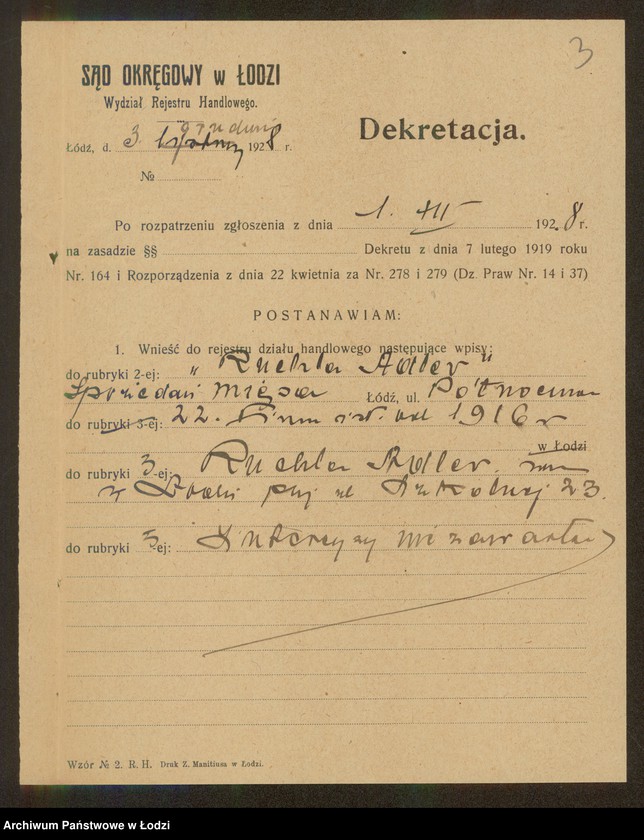 3
SĄD OKRĘGOWY w ŁODZI
Wydział Rejestru Handlowego.
Dekretacja.
grudnia
Łódź, d. 3 1928 r.
№
Po rozpatrzeniu zgłoszenia z dnia 1. XII 1928 r.
na zasadzie §§ Dekretu z dnia 7 lutego 1919 roku
Nr. 164 i Rozporządzenia z dnia 22 kwietnia za Nr. 278 i 279 (Dz. Praw Nr. 14 i 37)
POSTANAWIAM:
1. Wnieść do rejestru działu handlowego następujące wpisy:
do rubryki 2-ej: „Ruchla Adler"
Sprzedaż mięsa Łódź, ul. Północna
do rubryki 3-ej: 22. Firma istn. od 1916 r
w Łodzi
do rubryki 3-ej: Ruchla Adler. zam
w Łodzi przy ul Szkolnej 23.
do rubryki 5-ej: Intercyzy nie zawarła
Wzór № 2. R. H. Druk Z. Manitiusa w Łodzi.
Archiwum Państwowe w Łodzi